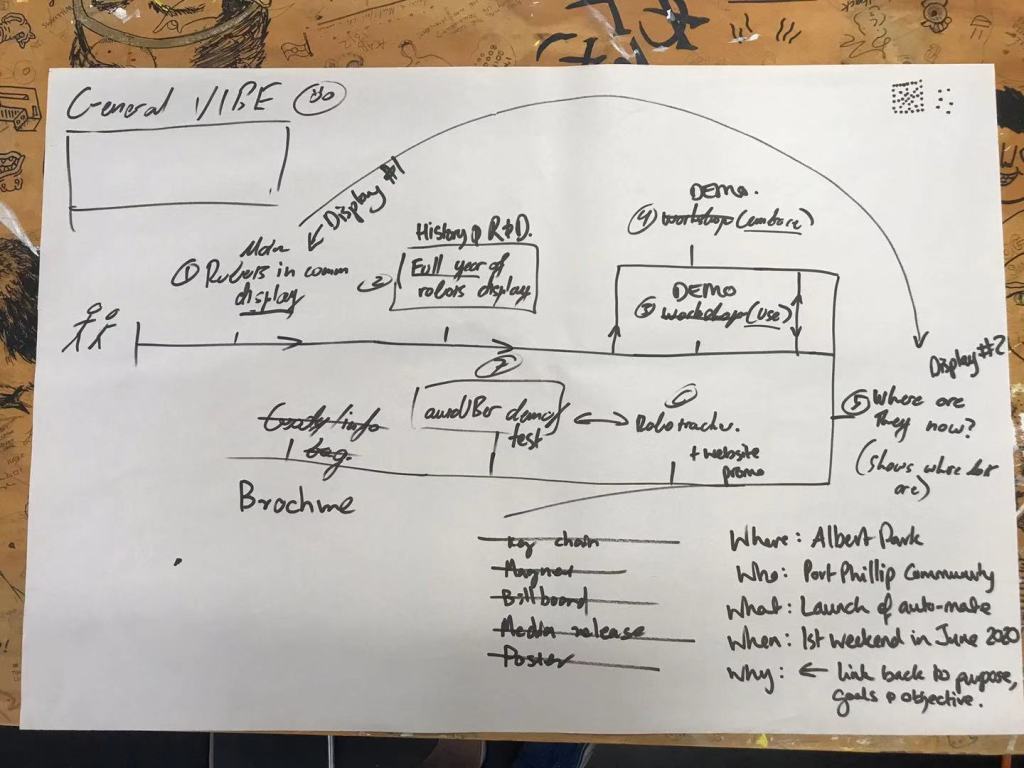 General VIBE
Display #1
Main
① Robots in comm
display
② History & R&D.
Full year of
robots display
DEMO.
④ workshop
DEMO
③ workshop (use)
Display #2
⑤ Where are
they now?
(shows where
are)
⑦
demo/
test
⑥
+ website
promo
/info
bag.
Brochure
Key chain
Magnet
Billboard
Media release
Poster
Where: Albert Park
Who: Port Phillip Community
What: Launch of auto-mate
When: 1st weekend in June 2020
Why: ← link back to purpose,
goals & objective.